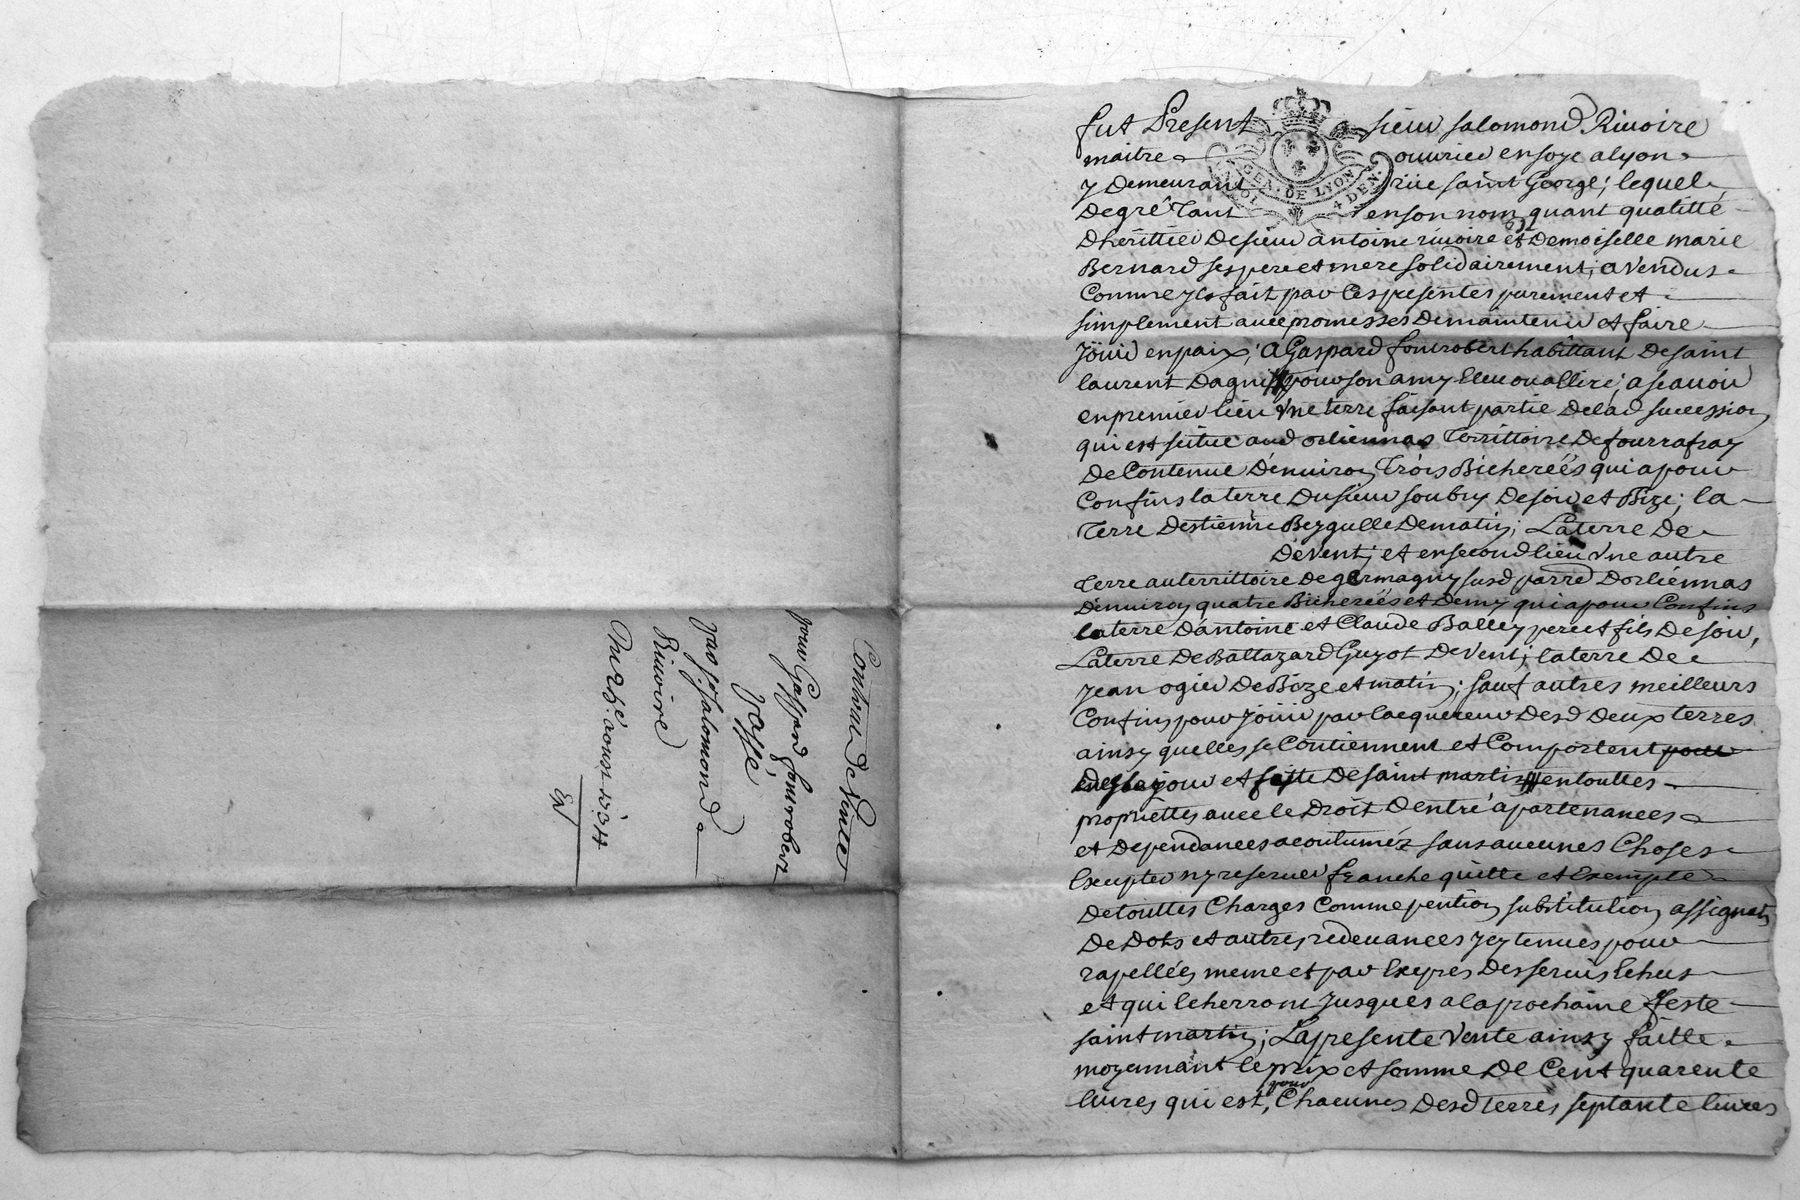 fut Present sieur salomond Riuoire
maitre ouurier en soye a lyon
y Demeurant rüe saint George; lequel
De gré tant en son nom quant qualitté
GEN. DE LYON
4 DEN.
Dherittier De sieur antoine riuoire et Demoiselle marie
Bernard ses pere et mere solidairement; a vendus
Comme yl fait par Ces presentes purement et
simplement auec promesses De maintenir et faire
Joüir en paix; a Gaspard fontrobert habittant De saint
laurent Dagni pour son amy Eleu ou a Elire; a scauoir
en premier lieu vne terre faisant partie De lad succession
qui est scitue aud orliennas Territtoire De fourrafray
De Contenue D'enuiron Trois Bicherées qui a pour
Confins la terre Du sieur soubry De soir et Bize; la
Terre Destienne Beygulle De matin; La terre De
De vent; et en second lieu vne autre
Terre au territtoire De germagny susd parre Dorliennas
D'enuiron quatre Bicherées et Demy qui a pour Confins
la terre D'antoine et Claude Balley pere et fils De soir,
La terre De Baltazard Guyot De vent; la terre De
Jean ogier De Bize et matin; sauf autres meilleurs
Confins pour Joüir par lacquereur Desd Deux terres
ainsy quelles se Contiennent et Comportent pour
jour et feste De saint martin en touttes
propriettes auec le Droit D'entré apartenances
et Dependances acoutuméz sans aucunes Choses
Excepter ny reseruer franche quitte et Exempte
De touttes Charges Comme pention substitution assignats
De Dots et autres redeuances ycy tenues pour
rapellées meme et par Expres Des seruis Echus
et qui Echerront Jusques a la prochaine feste
saint martin; La presente vente ainsy faitte
moyennant le prix et somme De Cent quarente
liures qui est, pour Chacunes Desd terres septante liures
Contrat De Vente
pour Gaspard fontrobert
Passé
par sr salomond
Riuoire
aoust 1734